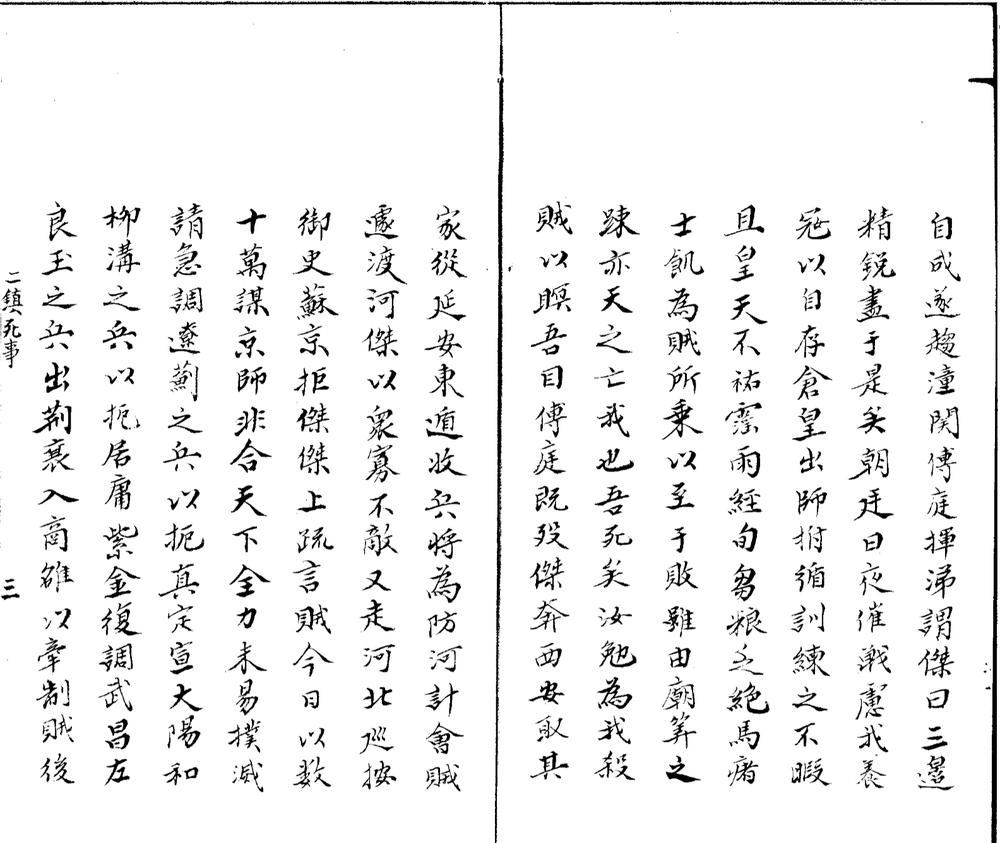 自成遂趨潼関傅庭揮涕謂傑曰三邊
精鋭盡于是矣朝廷日夜催戰慮我養
宼以自存倉皇出師拊循訓練之不暇
且皇天不祐霪雨經旬芻粮乏絶馬瘏
士飢為賊所乗以至于敗雖由廟筭之
踈亦天之亡我也吾死矣汝勉為我殺
賊以瞑吾目傅庭既歿傑奔西安取其
家從延安東遁收兵將為防河計會賊
遽渡河傑以衆寡不敵又走河北巡按
御史蘇京拒傑傑上疏言賊今日以数
十萬謀京師非合天下全力未易撲滅
請急調遼薊之兵以扼真定宣大陽和
柳溝之兵以扼居庸紫金復調武昌左
良玉之兵出荆襄入商雒以牽制賊後
二鎮死事
三